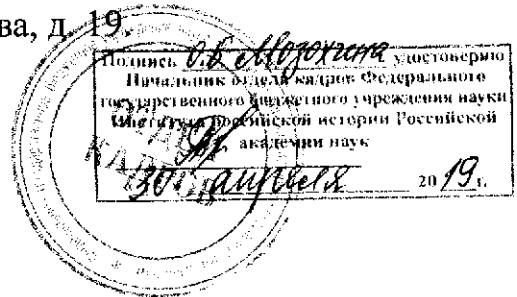 ва, д. 19
Подпись О.Б. Мозохина удостоверяю
Начальник отдела кадров Федерального
государственного бюджетного учреждения науки
Института российской истории Российской
академии наук
30 апреля 2019 г.